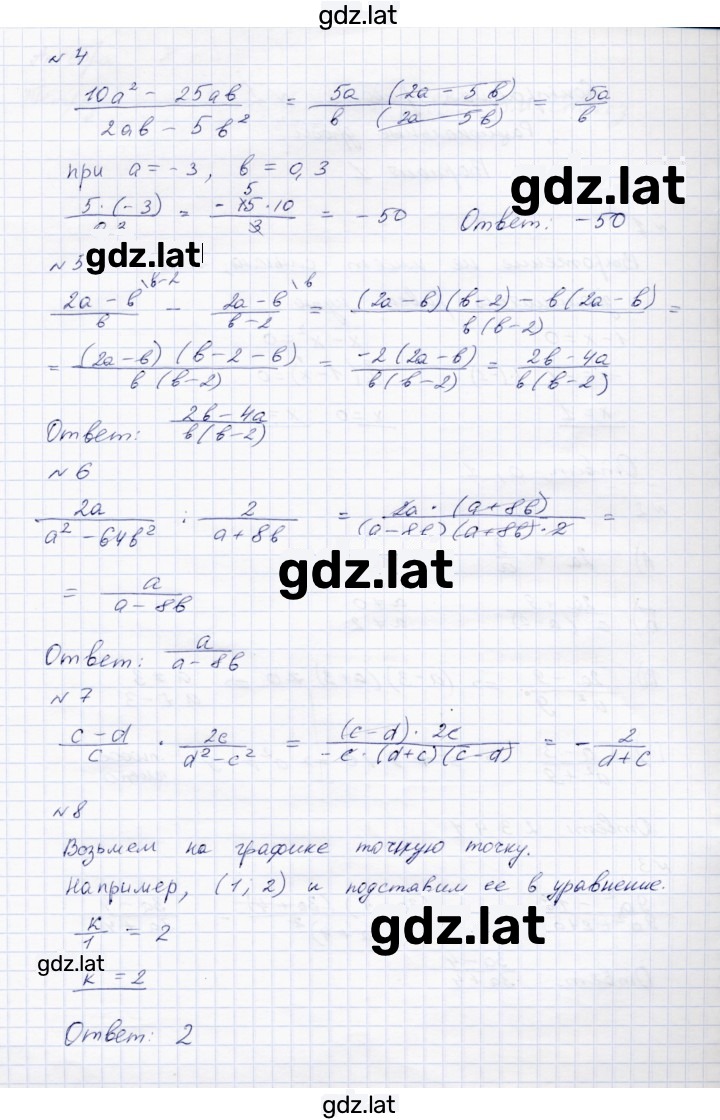 gdz.lat
№ 4
(10a² - 25ab)/(2ab - 5b²) = (5a (2a - 5b))/(b (2a - 5b)) = 5a/b
gdz.lat
при a = -3, b = 0,3
(5·(-3)) = (-15·10)/3 = -50 Ответ: -50
5
gdz.lat
№ 5
(2a - b)/b \b-2 - (2a - b)/(b - 2) \b = ((2a - b)(b - 2) - b(2a - b))/(b(b - 2)) =
= ((2a - b)(b - 2 - b))/(b(b - 2)) = (-2(2a - b))/(b(b - 2)) = (2b - 4a)/(b(b - 2))
Ответ: (2b - 4a)/(b(b - 2))
№ 6
2a/(a² - 64b²) : 2/(a + 8b) = (2a · (a + 8b))/((a - 8b)(a + 8b)·2) =
gdz.lat
= a/(a - 8b)
Ответ: a/(a - 8b)
№ 7
(c - d)/c · 2c/(d² - c²) = ((c - d)· 2c)/(-c·(d + c)(c - d)) = - 2/(d + c)
№ 8
Возьмем на графике точную точку.
Например, (1; 2) и подставим ее в уравнение.
gdz.lat
к/1 = 2
gdz.lat
к = 2
Ответ: 2
gdz.lat